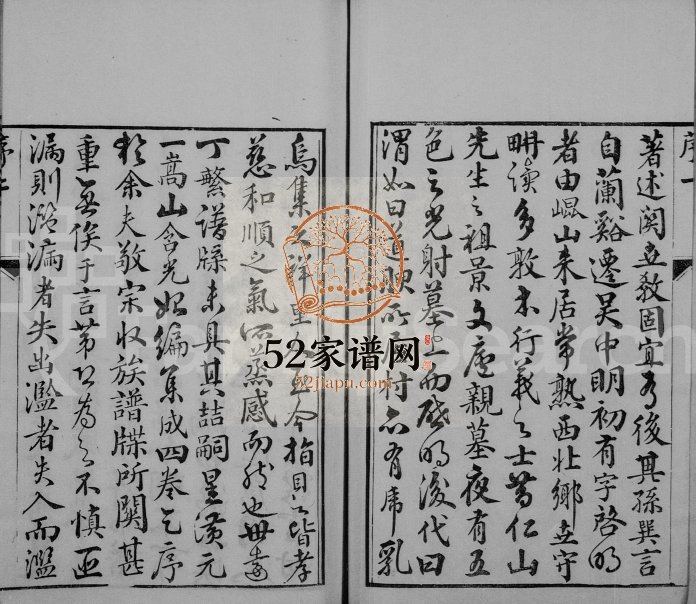 序一
著述闵立教固宜有後其孫巽言
自蘭谿遷吴中明初有字啓明
者由崐山来居常熟西北鄉世守
畊读多敦本行義之士蓄仁山
先生之祖景文廬親墓夜有五
色之光射墓上而啓明後代曰
渭如曰道順所居村亦有席乳
烏集之祥里至今指目以皆孝
慈和順之氣所蒸感而然也毋
丁繁譜牒未具其喆嗣星潢元
一嵩山含光始編集成四卷乞序
於余夫敬宗收族譜牒所關甚
重無俟于言第以為之不慎亟
漏則濫漏者失出濫者失入而濫
52家谱网
52jiapu.com